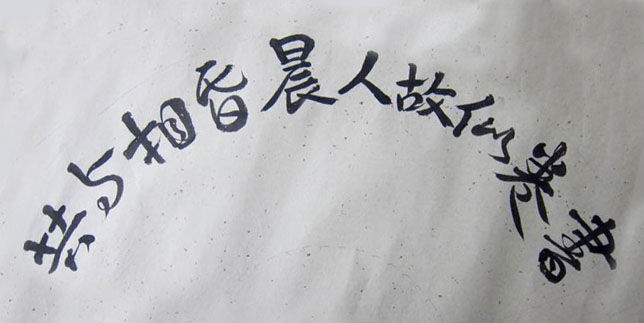 書卷似故人晨昏相与共